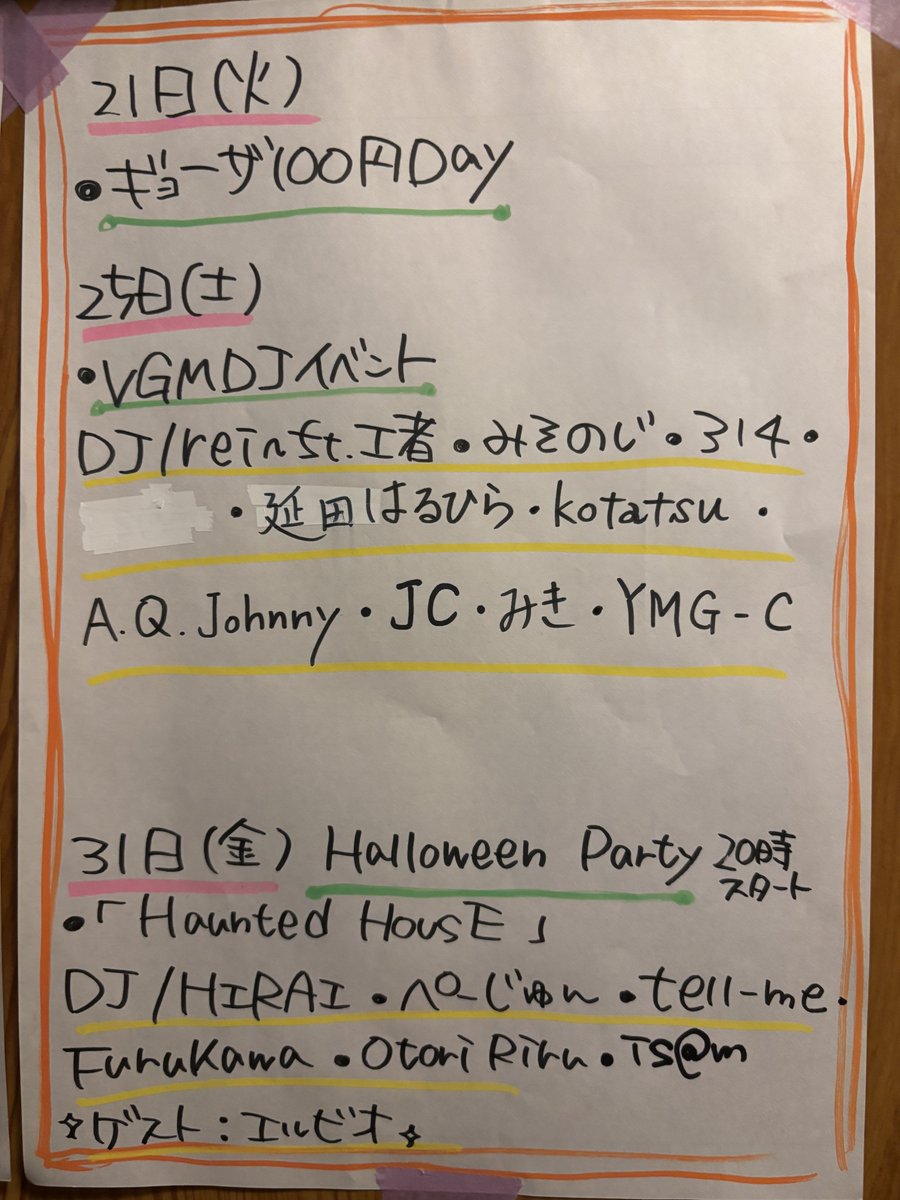 21日(火)
・ギョーザ100円Day
25日(土)
・VGMDJイベント
DJ/reinst.工者・みそのじ・314・
・延田はるひら・kotatsu・
A.Q.Johnny・JC・みき・YMG-C
31日(金) Halloween Party 20時スタート
・「Haunted HousE」
DJ/HIRAI・ペーじゅん・tell-me・
Furukawa・Otori Riru・Ts@m
☆ゲスト:エルビオ☆